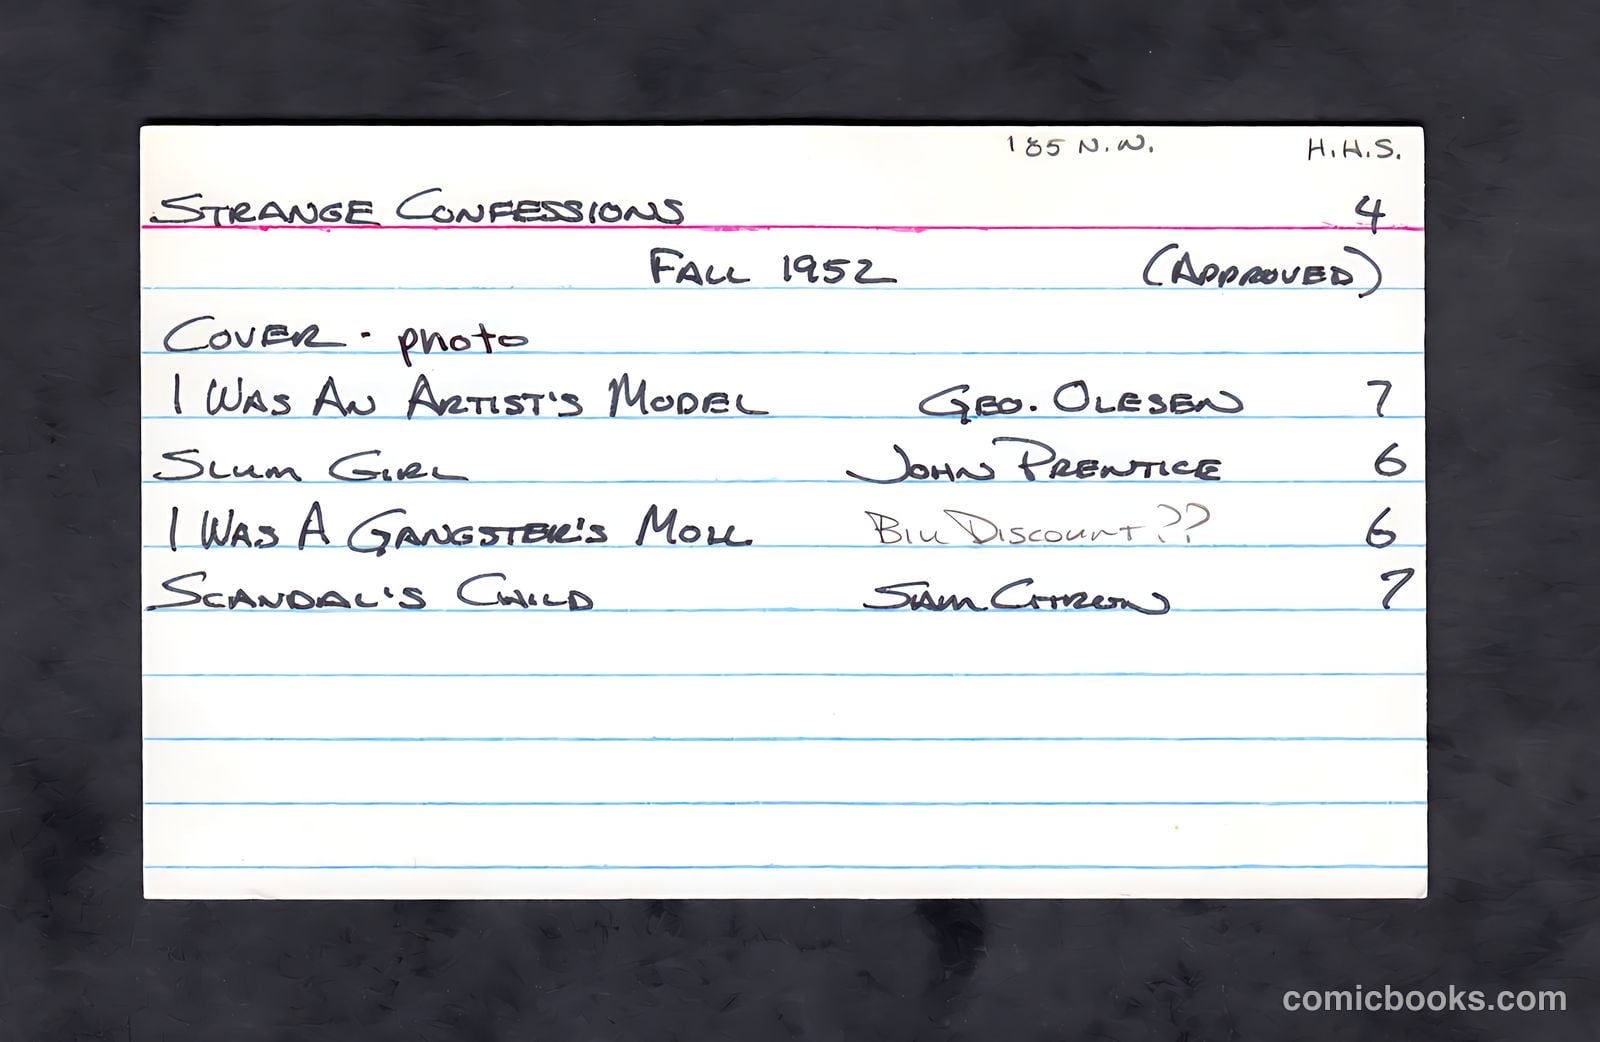 185 N.N. H.H.S.
STRANGE CONFESSIONS 4
FALL 1952 (APPROVED)
COVER - photo
I WAS AN ARTIST'S MODEL GEO. OLESEN 7
SLUM GIRL JOHN PRENTICE 6
I WAS A GANGSTER'S MOLL BILL DISCOUNT?? 6
SCANDAL'S CHILD SAM CITRON 7
comicbooks.com